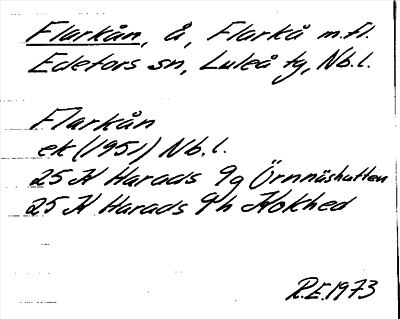 Flarkån, å, Flarkå m.fl.
Edefors sn, Luleå tg, Nb.l.
Flarkån
ek (1951) Nb.l.
25 K Harads 9g Örnnäshutten
25 K Harads 9h Kokhed
R.E.1973